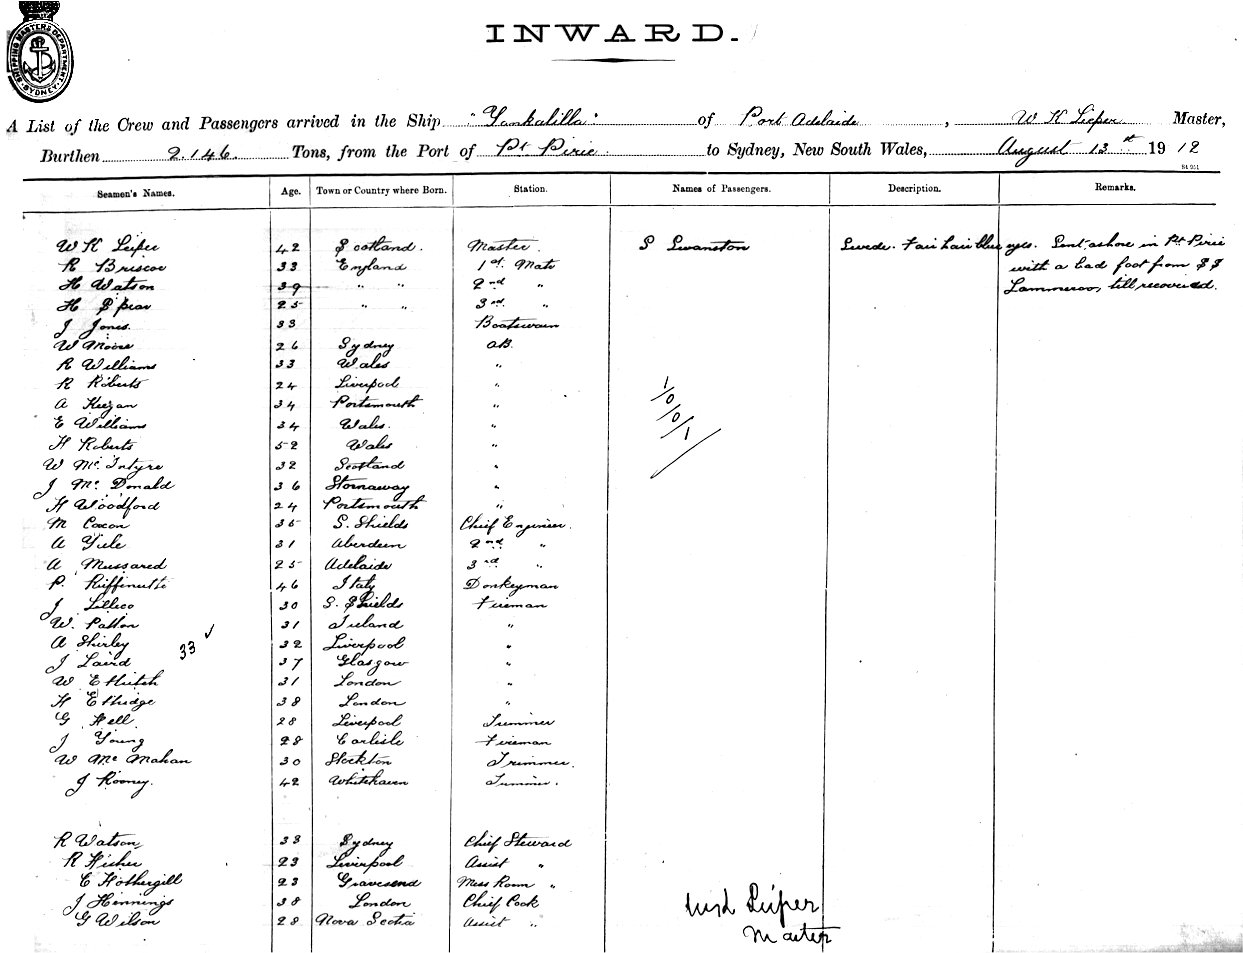 SHIPPING MASTERS DEPARTMENT SYDNEY
INWARD.
A List of the Crew and Passengers arrived in the Ship "Yankalilla" of Port Adelaide, W K Lieper Master,
Burthen 2.146. Tons, from the Port of Pt Pirie to Sydney, New South Wales, August 13st 1912
Seamen's Names. Age. Town or Country where Born. Station. Names of Passengers. Description. Remarks.
W K Lieper 42 Scotland. Master. S Swanston Swede. Fair hair blue eyes. Sent ashore in Pt Pirie
R Briscoe 33 England 1st Mate with a bad foot from SS
H Watson 39 " " 2nd " till recovered.
H Spear 25 " " 3rd "
J Jones. 33 Boatswain
W Moore 26 Sydney AB.
R Williams 33 Wales "
R Roberts 24 Liverpool "
A Keegan 34 Portsmouth "
E Williams 34 Wales. "
H Roberts 52 Wales "
W McIntyre 32 Scotland "
J McDonald 36 Stornaway "
H Woodford 24 Portsmouth "
M Coxon 35 S. Shields Chief Engineer.
A Yule 31 Aberdeen 2nd "
A Mussared 25 Adelaide 3rd "
P. 46 Italy Donkeyman
J Lillico 30 S. Shields Fireman
W. Patton 31 Ireland "
A Shirley 32 Liverpool "
33
J Laird 37 Glasgow "
W E 31 London "
H Ethidge 38 London "
G Hell. 28 Liverpool Trimmer
J Young 28 Carlisle Fireman
W McMahan 30 Stockton Trimmer.
J Rooney. 42 Whitehaven Trimmer.
1/0/0/1/
R Watson 38 Sydney Chief Steward
R Fisher 23 Liverpool Assist "
E Fothergill 23 Gravesend Mess Room "
J Hennings 38 London Chief Cook
G Wilson 28 Nova Scotia Assist "
Lieper
Master